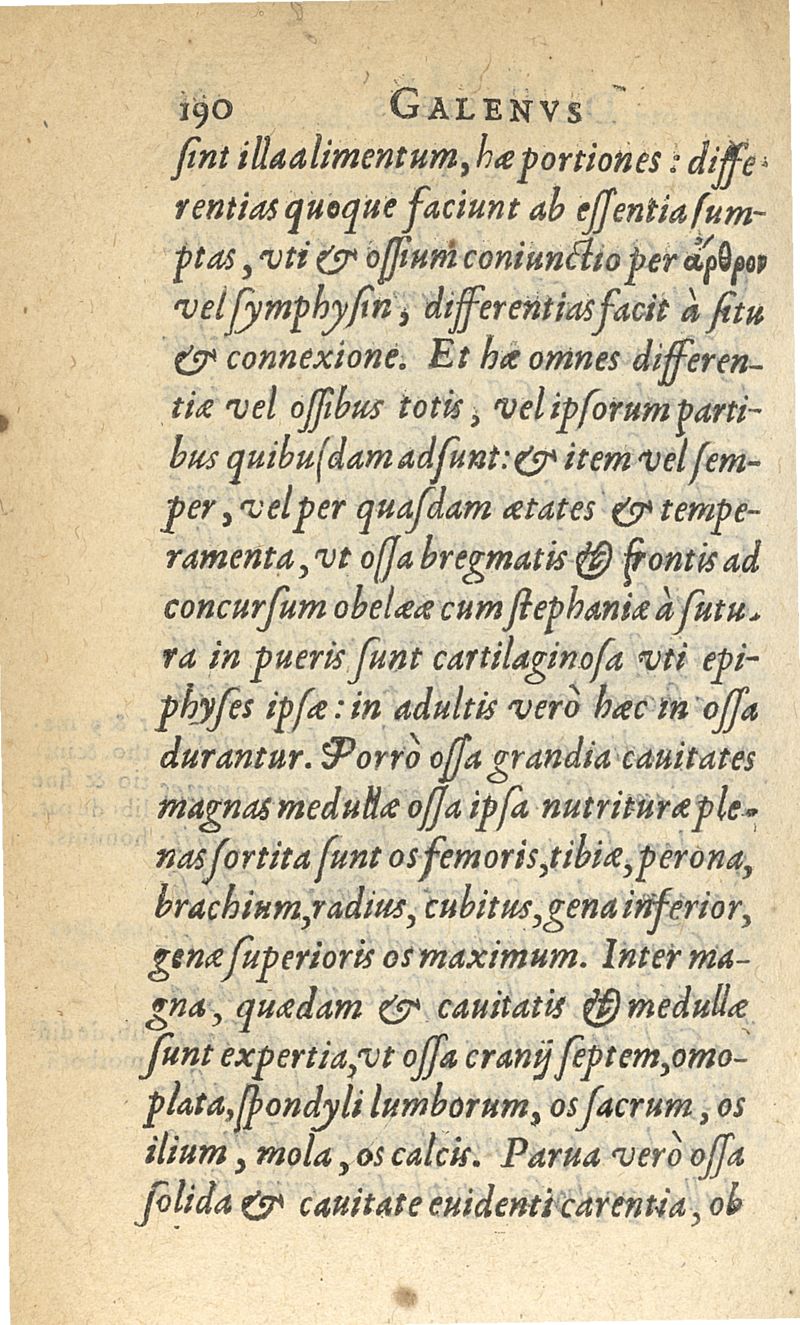 190 GALENVS
ſint illa alimentum, hæ portiones: diffe-
rentias quoque faciunt ab eſſentia ſum-
ptas, vti & oſſium coniunctio per ἄρθρον
vel ſymphyſin, differentias facit à ſitu
& connexione. Et hæ omnes differen-
tiæ vel oſſibus totis, vel ipſorum parti-
bus quibuſdam adſunt: & item vel ſem-
per, vel per quaſdam ætates & tempe-
ramenta, vt oſſa bregmatis & frontis ad
concurſum obelææ cum ſtephaniæ à ſutu-
ra in pueris ſunt cartilaginoſa vti epi-
phyſes ipſæ: in adultis verò hæc in oſſa
durantur. Porrò oſſa grandia cauitates
magnas medullæ oſſa ipſa nutrituræ ple-
nas ſortita ſunt os femoris, tibiæ, perona,
brachium, radius, cubitus, gena inferior,
genæ ſuperioris os maximum. Inter ma-
gna, quædam & cauitatis & medullæ
ſunt expertia, vt oſſa cranij ſeptem, omo-
plata, ſpondyli lumborum, os ſacrum, os
ilium, mola, os calcis. Parua verò oſſa
ſolida & cauitate euidenti carentia, ob